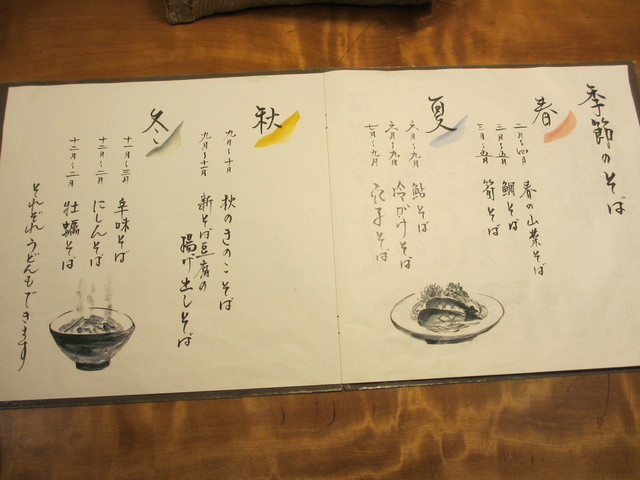 季節のそば
春
二月〜四月 春の山菜そば
三月〜五月 鯛そば
三月〜五月 筍そば
夏
六月〜九月 鮎そば
六月〜九月 冷かけそば
七月〜九月 茄子そば
秋
九月〜十月 秋のきのこそば
九月〜十一月 新そば豆腐の
揚げ出しそば
冬
十一月〜三月 牟味そば
十二月〜二月 にしんそば
十二月〜二月 牡蠣そば
それぞれうどんもできます